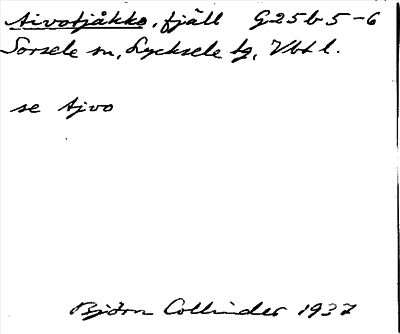 Aivotjåkko, fjäll G25b5-6
Sorsele sn, Lycksele tg, Vbt l.
se Ajvo
Björn Collinder 1937